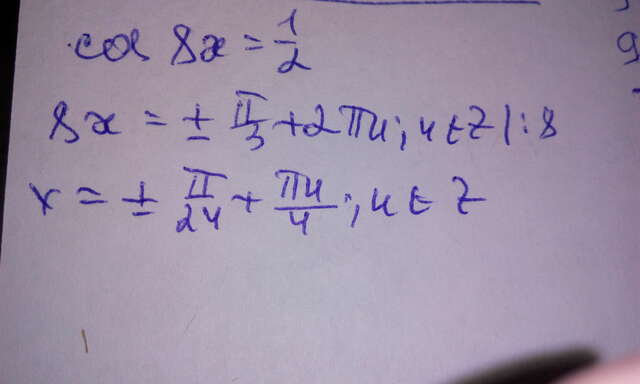 cos 8x = 1/2
8x = ± π/3 + 2πn; n ∈ Z |: 8
x = ± π/24 + πn/4; n ∈ Z